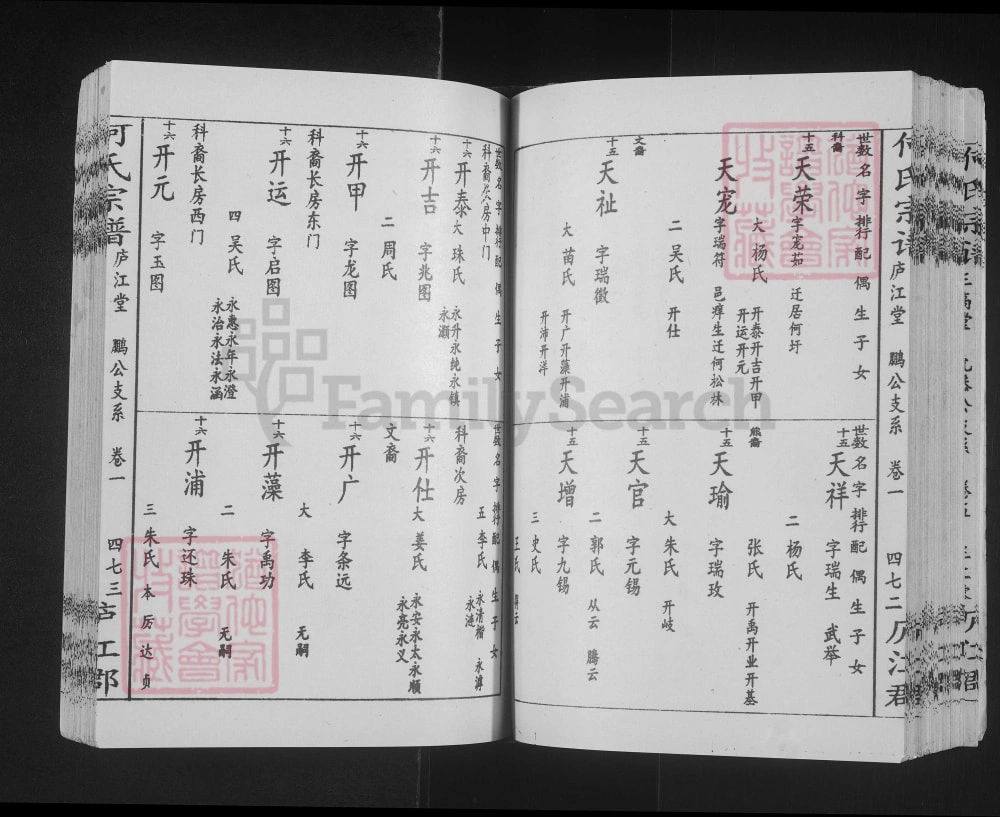 何氏宗谱 庐江堂 鹏公支系 卷一 四七二 庐江郡
世数 名 字 排行 配偶 生子女
科裔
十五 天荣 字宠茹 迁居何圩
大 杨氏 开泰开吉开甲
开运开元
天宠 字瑞符 邑庠生迁何松林
二 吴氏 开仕
文裔
十五 天祉 字瑞徵
大 苗氏 开广开藻开浦
开沛开洋
世数 名 字 排行 配偶 生子女
十五 天祥 字瑞生 武举
二 杨氏
熊裔
张氏 开禹开业开基
十五 天瑜 字瑞玫
大 朱氏 开岐
十五 天官 字元锡
二 郭氏 从云 腾云
十五 天增 字九锡
三 史氏
王氏
世数 名 字 排行 配偶 生子女
科裔长房中门
十六 开泰 大 珠氏 永升永纯永镇
永灏
十六 开吉 字兆图
二 周氏
十六 开甲 字龙图
科裔长房东门
十六 开运 字启图
四 吴氏 永惠永年永澄
永治永法永涵
科裔长房西门
十六 开元 字玉图
世数 名 字 排行 配偶 生子女
五 李氏 永清 永涛
永涟
科裔次房
十六 开仕 大 姜氏 永安永太永顺
永亮永义
文裔
十六 开广 字条远
大 李氏 无嗣
十六 开藻 字禹功
二 朱氏 无嗣
十六 开浦 字还珠
三 朱氏 本厉达贞
何氏宗谱 庐江堂 鹏公支系 卷一 四七三
FamilySearch